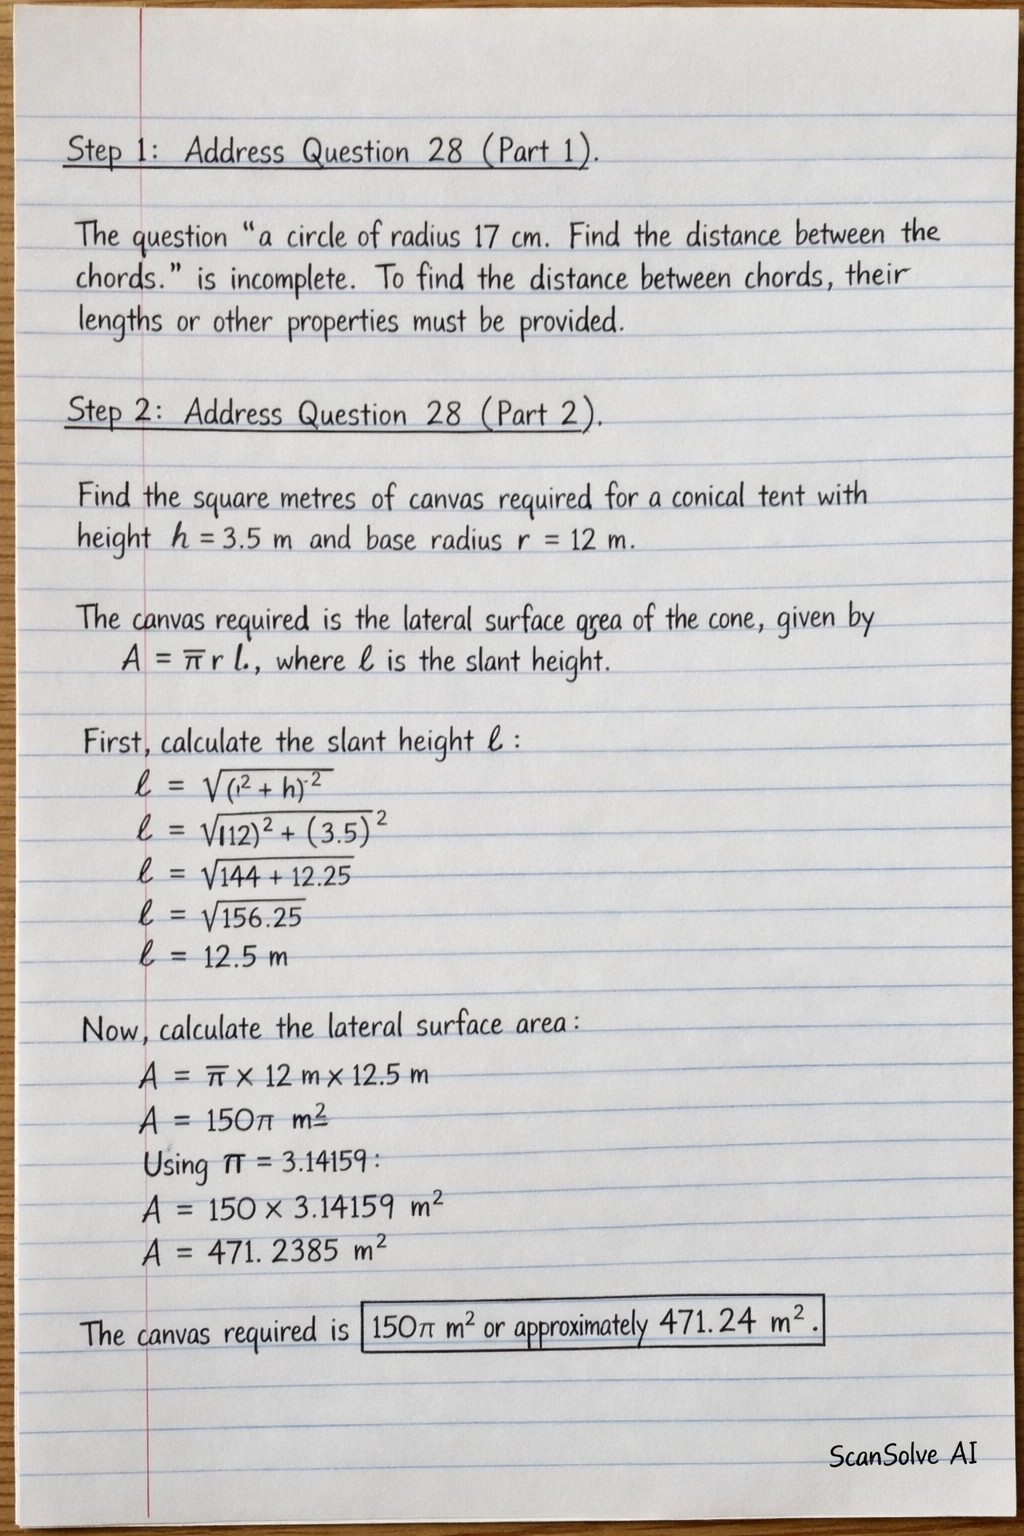 Step 1: Address Question 28 (Part 1).
The question “a circle of radius 17 cm. Find the distance between the
chords.” is incomplete. To find the distance between chords, their
lengths or other properties must be provided.
Step 2: Address Question 28 (Part 2).
Find the square metres of canvas required for a conical tent with
height h = 3.5 m and base radius r = 12 m.
The canvas required is the lateral surface area of the cone, given by
A = π r l., where ℓ is the slant height.
First, calculate the slant height ℓ :
ℓ = √(r² + h)²
ℓ = √(12)² + (3.5)²
ℓ = √144 + 12.25
ℓ = √156.25
ℓ = 12.5 m
Now, calculate the lateral surface area:
A = π × 12 m × 12.5 m
A = 150π m²
Using π = 3.14159:
A = 150 × 3.14159 m²
A = 471. 2385 m²
The canvas required is 150π m² or approximately 471.24 m².
ScanSolve AI